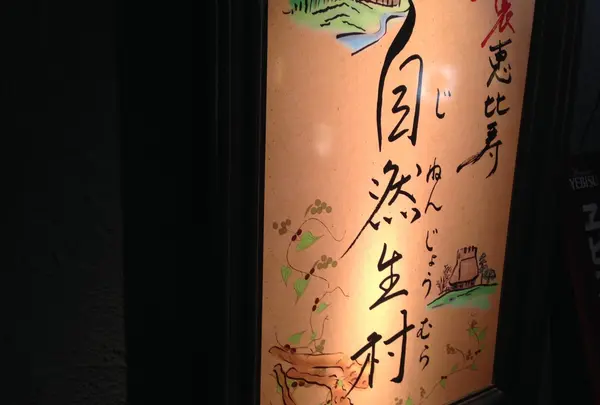 裏恵比寿
自然生村
じねんじょうむら
YEBISU